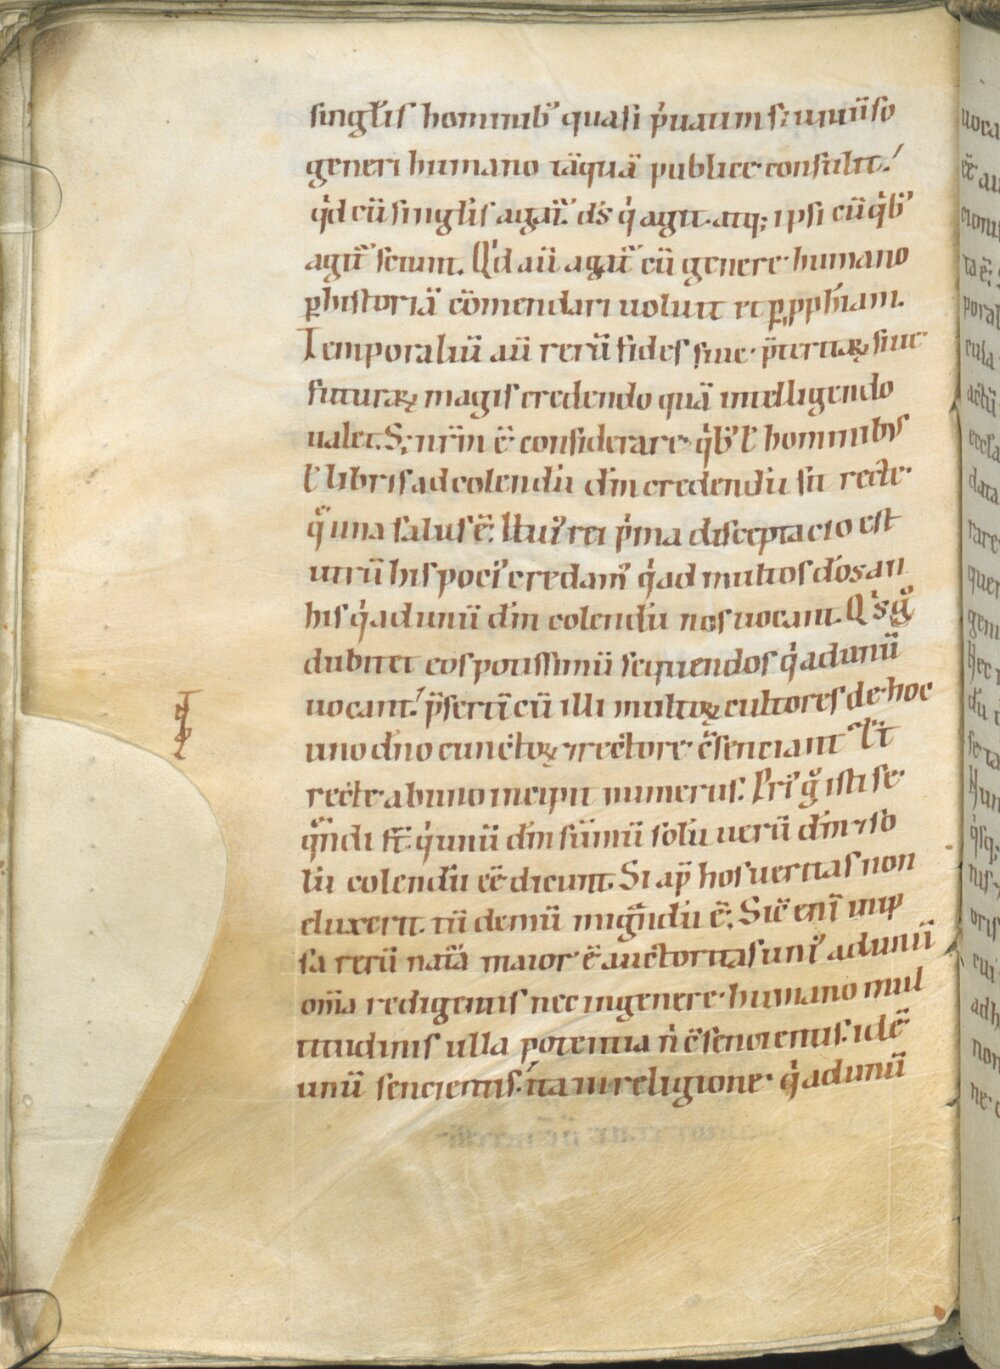 singlis hominib' quasi p'uatim s; uniũso
generi humano tãquã publice consulit.
qd' cũ singlis agat'. ds' q' agit. atq; ipsi cũ q'b'
agit' sciunt. Qd' aũ agat' cũ genere humano
ꝑ historiã cõmendari uoluit et ꝑ pph'iam.
Temporaliũ aũ rerũ fides siue p̃teritaꝝ siue
futuraꝝ magis credendo quã intelligendo
ualet. S; nr̃m ẽ considerare q'b' ł hominibus
ł libris ad colendũ dm̃ credendũ sit recte
q̊ una salus ẽ. Hui' rei p'ma disceptacio est
utrũ his poci' credam' q' ad multos deos an
his q' ad unũ dm̃ colendũ nos uocant. Q's g̊
dubitet eos potissimũ sequendos q' ad unũ
uocant. p̃sertĩ cũ illi multoꝝ cultores de hoc
uno dño cunctoꝝ ⁊ rectore c̃senciant
recte ab uno incipit numerus. Pri' g̊ isti se
q̃ndi st̃. q' unũ dm̃ sũmũ solũ uerũ dm̃ ⁊ so
lũ colendũ eẽ dicunt. Si ap̃ hos ueritas non
eluxerit. tũ demũ migrandũ ẽ. Sic̃ enĩ in ip
sa rerũ nat̃a maior ẽ auctoritas uni' ad unũ
om̃ia redigentis nec in genere humano mul
titudinis ulla potentia ñ c̃sencientis. idẽ
unũ sencientis. ita in religione q' ad unũ